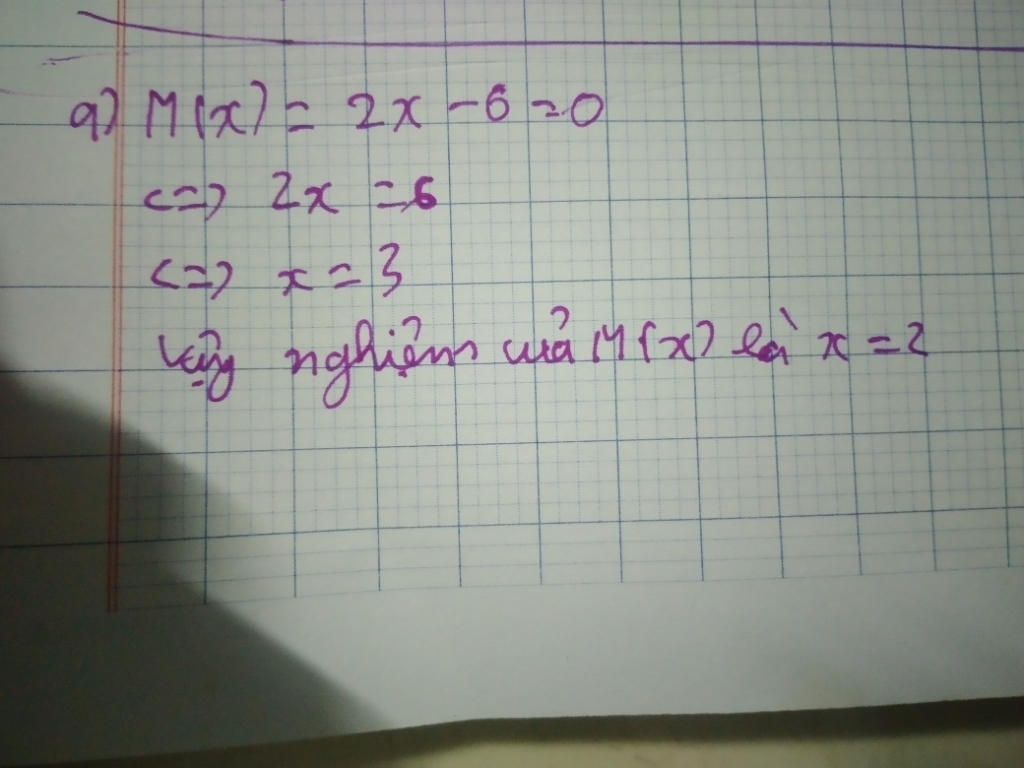 a) M(x) = 2x - 6 = 0
<=> 2x = 6
<=> x = 3
Vậy nghiệm của M(x) là x = 2